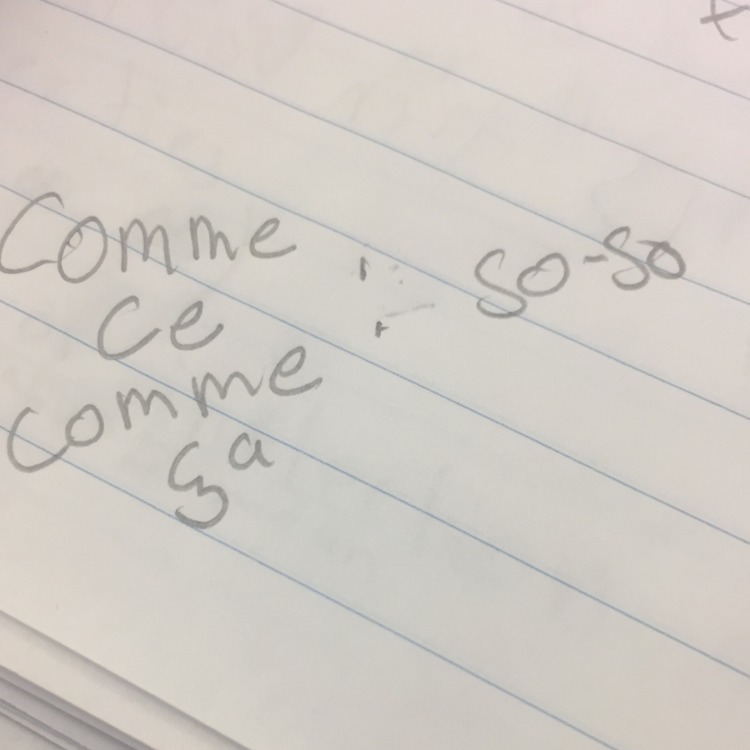 Comme : so-so
ce
comme
ça